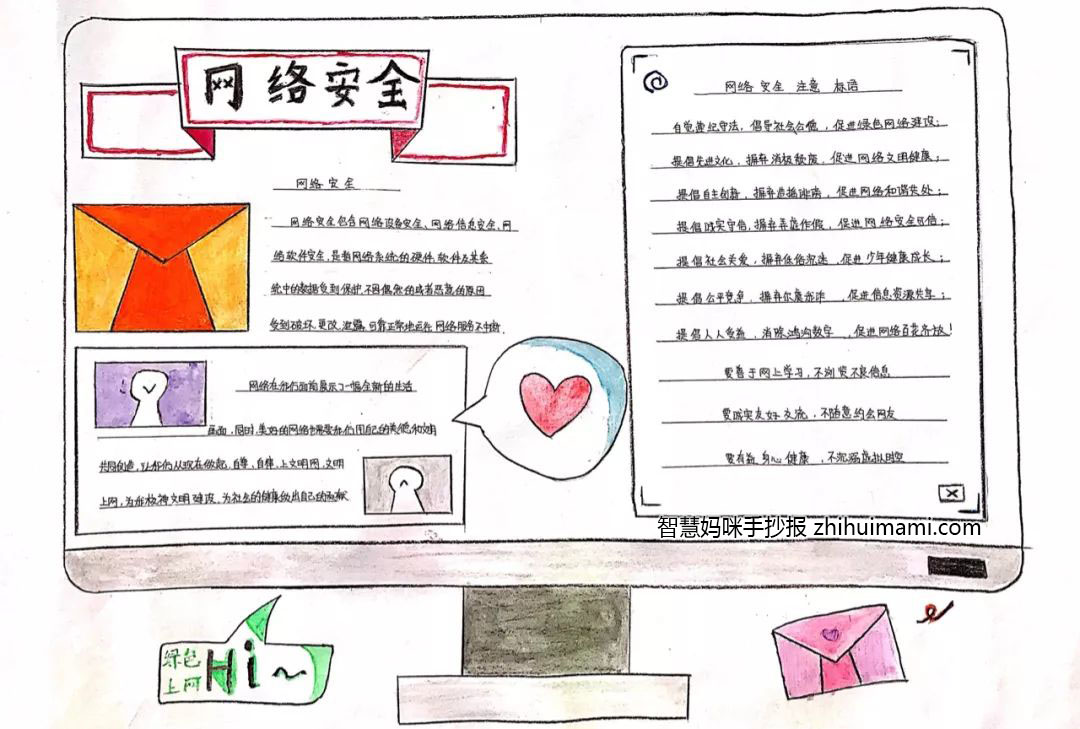 网络安全
网络安全
网络安全包含网络设备安全、网络信息安全、网
络软件安全,是指网络系统的硬件、软件及其系
统中的数据受到保护,不因偶然的或者恶意的原因
受到破坏、更改、泄露,可靠正常地运行,网络服务不中断.
网络在我们面前展示了一幅全新的生活
画面,同时,美好的网络也需要我们用自己的美德和文明
共同创造,让我们从现在做起,自尊、自律,上文明网,文明
上网,为 精神文明建设,为社会的健康做出自己的贡献
@
网络 安全 注意 标语
自觉遵纪守法,倡导社会公德,促进绿色网络建设;
提倡先进文化,摒弃消极颓废,促进网络文明健康;
提倡自主创新,摒弃 ,促进网络和谐共处;
提倡诚实守信,摒弃弄虚作假,促进网络安全可信;
提倡社会关爱,摒弃低俗沉迷,促进少年健康成长;
提倡公平竞争,摒弃尔虞我诈,促进信息资源共享;
提倡人人受益,消除鸿沟数字,促进网络百花齐放!
要善于网上学习,不浏览不良信息
要诚实友好交流,不随意约会网友
要有益身心健康,不沉溺虚拟时空
智慧妈咪手抄报 zhihuimami.com
绿色
上网
Hi~